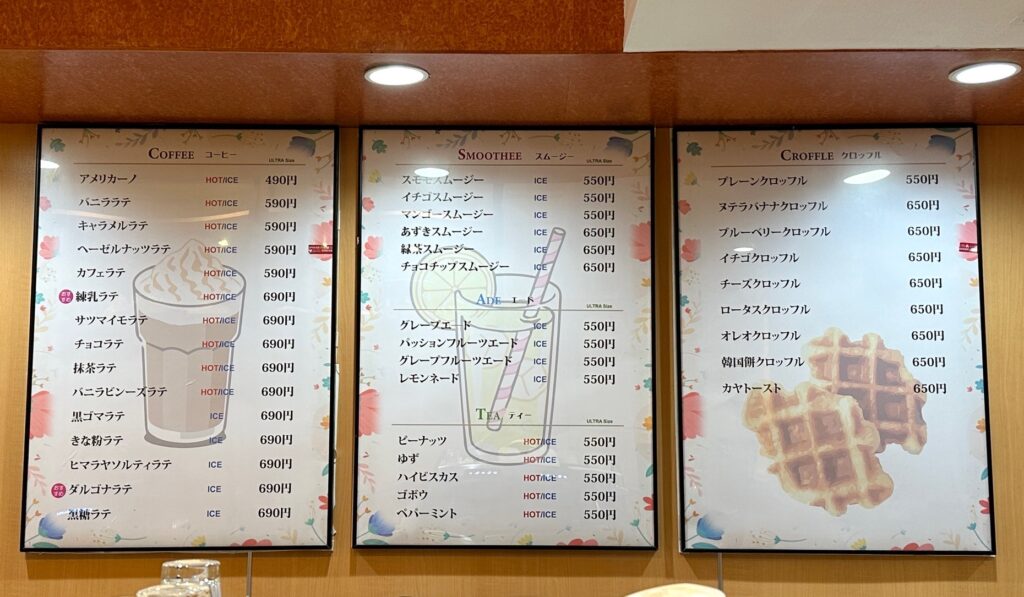 COFFEE コーヒー ULTRA Size
アメリカーノ HOT/ICE 490円
バニララテ HOT/ICE 590円
キャラメルラテ HOT/ICE 590円
ヘーゼルナッツラテ HOT/ICE 590円
カフェラテ HOT/ICE 590円
おすすめ 練乳ラテ HOT/ICE 690円
サツマイモラテ HOT/ICE 690円
チョコラテ HOT/ICE 690円
抹茶ラテ HOT/ICE 690円
バニラビンーズラテ HOT/ICE 690円
黒ゴマラテ ICE 690円
きな粉ラテ ICE 690円
ヒマラヤソルティラテ ICE 690円
おすすめ ダルゴナラテ ICE 690円
黒糖ラテ ICE 690円
SMOOTHEE スムージー ULTRA Size
スモモスムージー ICE 550円
イチゴスムージー ICE 550円
マンゴースムージー ICE 550円
あずきスムージー ICE 650円
緑茶スムージー ICE 650円
チョコチップスムージー ICE 650円
ADE エード ULTRA Size
グレープエード ICE 550円
パッションフルーツエード ICE 550円
グレープフルーツエード ICE 550円
レモンネード ICE 550円
TEA ティー ULTRA Size
ピーナッツ HOT/ICE 550円
ゆず HOT/ICE 550円
ハイビスカス HOT/ICE 550円
ゴボウ HOT/ICE 550円
ペパーミント HOT/ICE 550円
CROFFLE クロッフル
プレーンクロッフル 550円
ヌテラバナナクロッフル 650円
ブルーベリークロッフル 650円
イチゴクロッフル 650円
チーズクロッフル 650円
ロータスクロッフル 650円
オレオクロッフル 650円
韓国餅クロッフル 650円
カヤトースト 650円